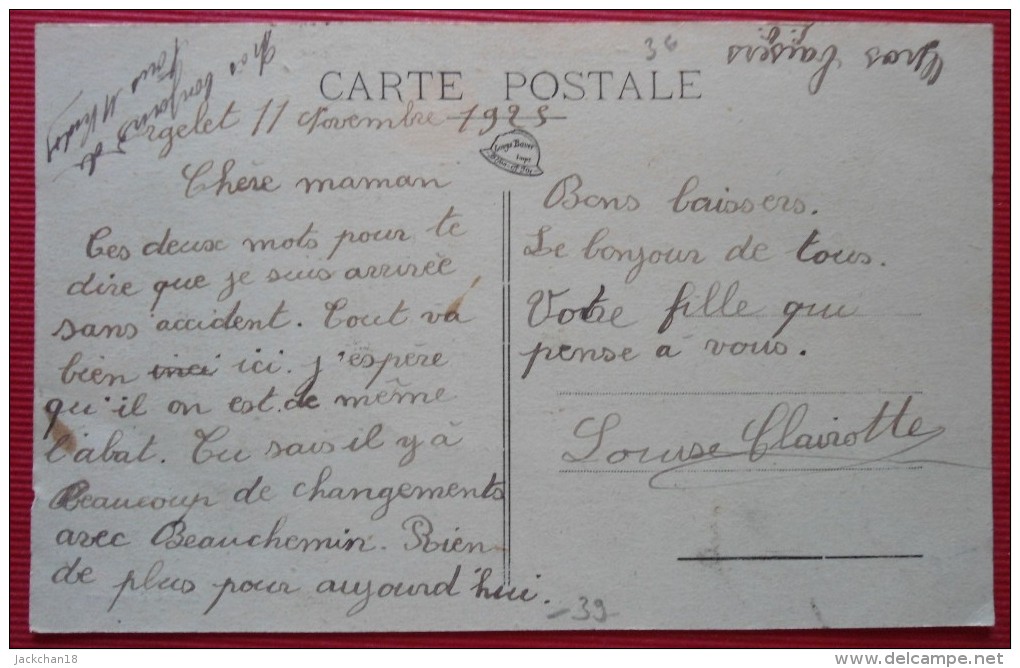 CARTE POSTALE
36
Gros baisers
bonjours de
11 Novembre 1925
Chère maman
Ces deux mots pour te
dire que je suis arrivée
sans accident. Tout va
bien inci ici. J'espère
qu'il on est de même
l'abat. Tu sais il y à
Beaucoup de changements
avec Beauchemin. Rien
de plus pour aujourd'hui.
Bons baissers.
Le bonjour de tous.
Votre fille qui
pense a vous.
Louise Clairotte
-39-
jackchan18
delcampe.net